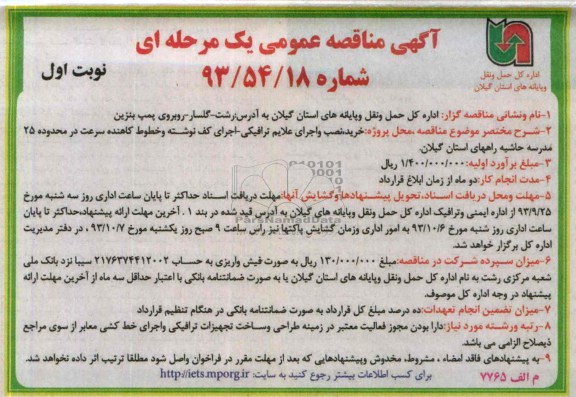 آگهی مناقصه عمومی یک مرحله ای
شماره ۹۳/۵۴/۱۸
نوبت اول
اداره کل حمل ونقل
وپایانه های استان گیلان
۱-نام ونشانی مناقصه گزار: اداره کل حمل ونقل وپایانه های استان گیلان به آدرس:رشت-گلسار-روبروی پمپ بنزین
۲-شرح مختصر موضوع مناقصه ،محل پروژه:خرید،نصب واجرای علایم ترافیکی-اجرای کف نوشته وخطوط کاهنده سرعت در محدوده ۲۵
مدرسه حاشیه راههای استان گیلان.
۳-مبلغ برآورد اولیه:۱/۴۰۰/۰۰۰/۰۰۰ ریال
۴-مدت انجام کار:دو ماه از زمان ابلاغ قرارداد
۵-مهلت ومحل دریافت اسناد،تحویل پیشنهادها وگشایش آنها:مهلت دریافت اسناد حداکثر تا پایان ساعت اداری روز سه شنبه مورخ
۹۳/۹/۲۵ از اداره ایمنی وترافیک اداره کل حمل ونقل وپایانه های گیلان به آدرس قید شده در بند ۱ . آخرین مهلت ارائه پیشنهاد،حداکثر تا پایان
ساعت اداری روز شنبه مورخ ۹۳/۱۰/۶ به امور اداری وزمان گشایش پاکتها نیز راس ساعت ۹ صبح روز یکشنبه مورخ ۹۳/۱۰/۷ ، در دفتر مدیریت
اداره کل برگزار خواهد شد.
۶-میزان سپرده شرکت در مناقصه:مبلغ ۱۳۰/۰۰۰/۰۰۰ ریال به صورت فیش واریزی به حساب ۲۱۷۶۳۷۴۴۱۲۰۰۲ سیبا نزد بانک ملی
شعبه مرکزی رشت به نام اداره کل حمل ونقل وپایانه های استان گیلان یا به صورت ضمانتنامه بانکی با اعتبار حداقل سه ماه از آخرین مهلت ارائه
پیشنهاد در وجه اداره کل موصوف.
۷-میزان تضمین انجام تعهدات:ده درصد مبلغ کل قرارداد به صورت ضمانتنامه بانکی در هنگام تنظیم قرارداد
۸-رتبه ورشته مورد نیاز:دارا بودن مجوز فعالیت معتبر در زمینه طراحی وساخت تجهیزات ترافیکی واجرای خط کشی معابر از سوی مراجع
ذیصلاح الزامی می باشد.
۹-به پیشنهادهای فاقد امضاء ، مشروط، مخدوش وپیشنهادهایی که بعد از مهلت مقرر در فراخوان واصل شود مطلقا ترتیب اثر داده نخواهد شد.
م الف ۷۷۶۵
برای کسب اطلاعات بیشتر رجوع کنید به سایت: http://iets.mporg.ir
ParsNamadData